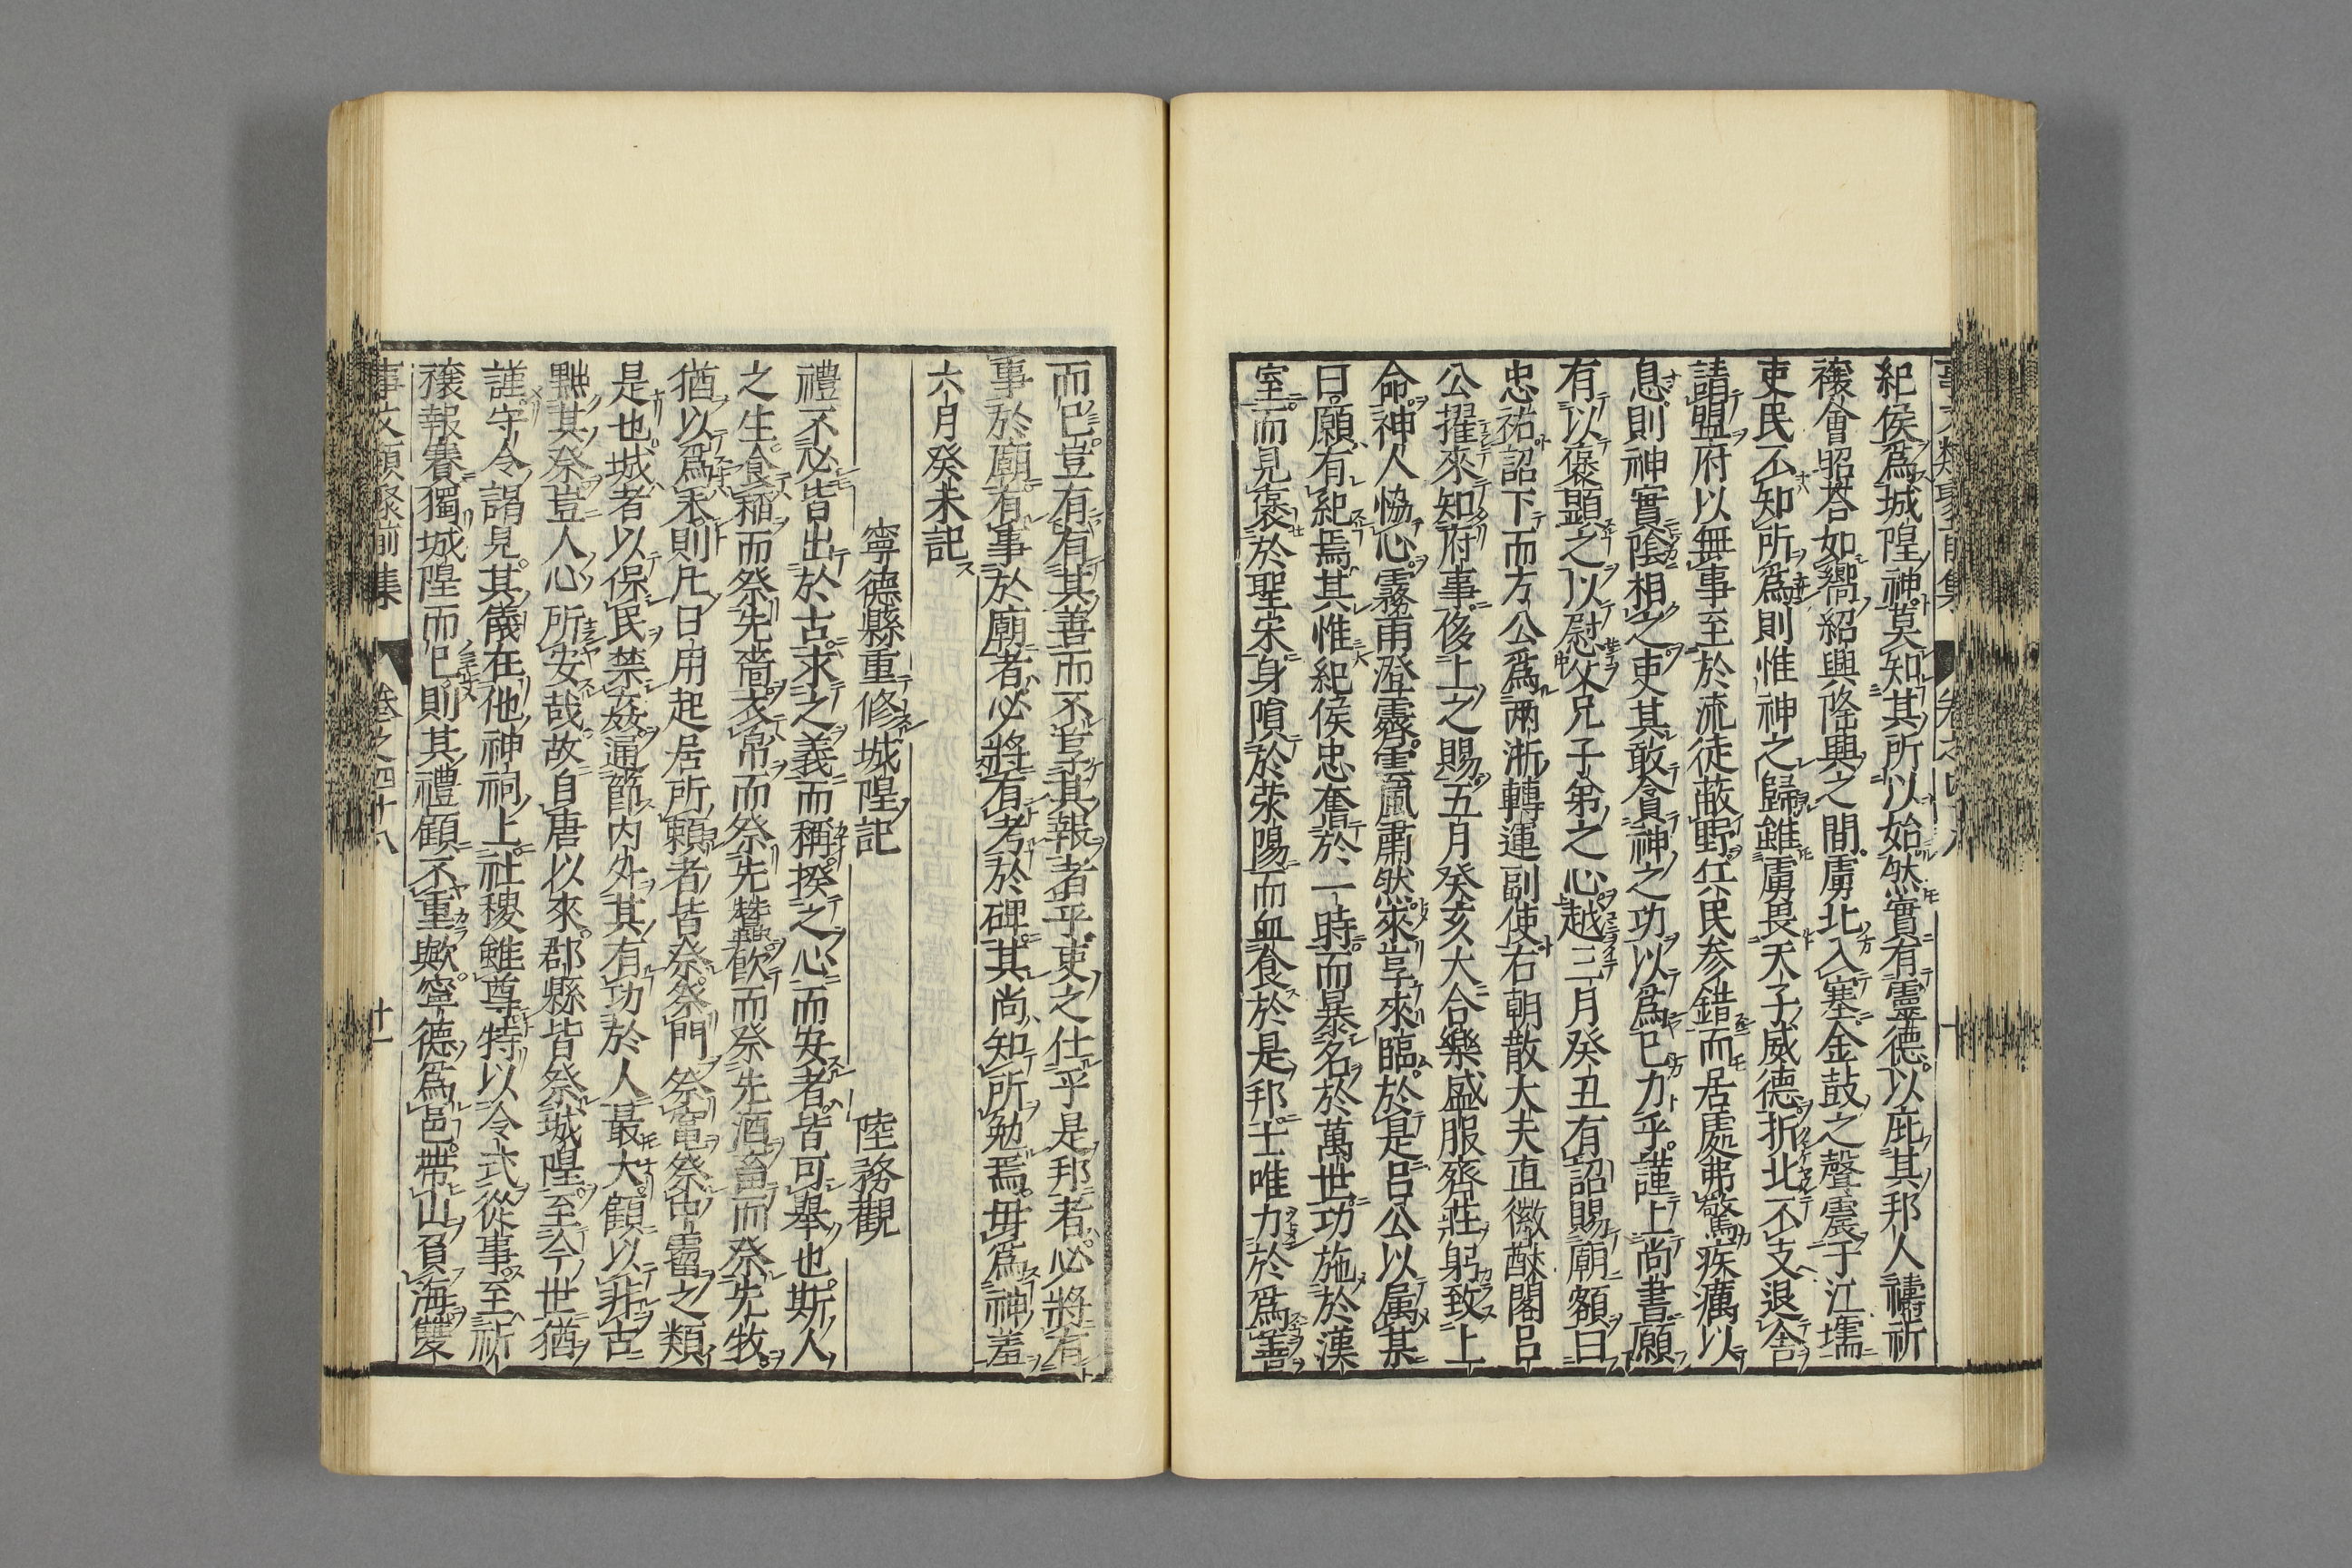 紀侯爲城隍神莫知其所以始然實有靈德以庇其邦人禱祈
禳會昭荅如嚮紹興隆興之間虜北入塞金鼓之聲震于江壖
吏民不知所爲則惟神之歸雖虜畏天子威德折北不支退舎
請盟府以無事至於流徒蔽野兵民参錯而居處弗驚疾癘以
息則神實陰相之吏其敢貪神之功以爲已力乎謹上尚書願
有以褒顕之以慰父兄子弟之心越三月癸丑有詔賜廟額曰
忠祐詔下而方公爲兩淅轉運副使右朝散大夫直徽猷閣吕
公擢來知府事侈上之賜五月癸亥大合樂盛服齊莊躬致上
命神人恊心霧雨澄霽風肅然來享來臨於是吕公以属某
曰願有紀焉其惟紀侯忠奮於一時而暴名於萬世功施於漢
室而見褒於聖宋身隕於滎陽而血食於是邦士唯力於爲善
而已豈有有其善而不享其報者乎吏之仕乎是邦者必將有
事於廟有事於廟者必將有考於碑其尚知所勉焉毋爲神羞
六月癸未記
寧德縣重修城隍記 陸務觀
禮不必皆出於古求之義而稱揆之心而安者皆可舉也斯人
之生食稲而祭先嗇衣帛而祭先蠶飲而祭先酒畜而祭先牧
猶以爲未則凡日用起居所頼者皆祭祭門祭竈祭中霤之類
是也城者以保民禁姦通節内外其有功於人最大顧以非古
黜其祭豈人心所安哉故自唐以來郡縣皆祭城隍至今世猶
謹守令謁見其儀在他神祠上社稷雖尊特以令式從事至祈
禳報賽獨城隍而已則其禮顧不重歟寧德爲邑帶山負海雙
事文類聚前集 卷之四十八 十一